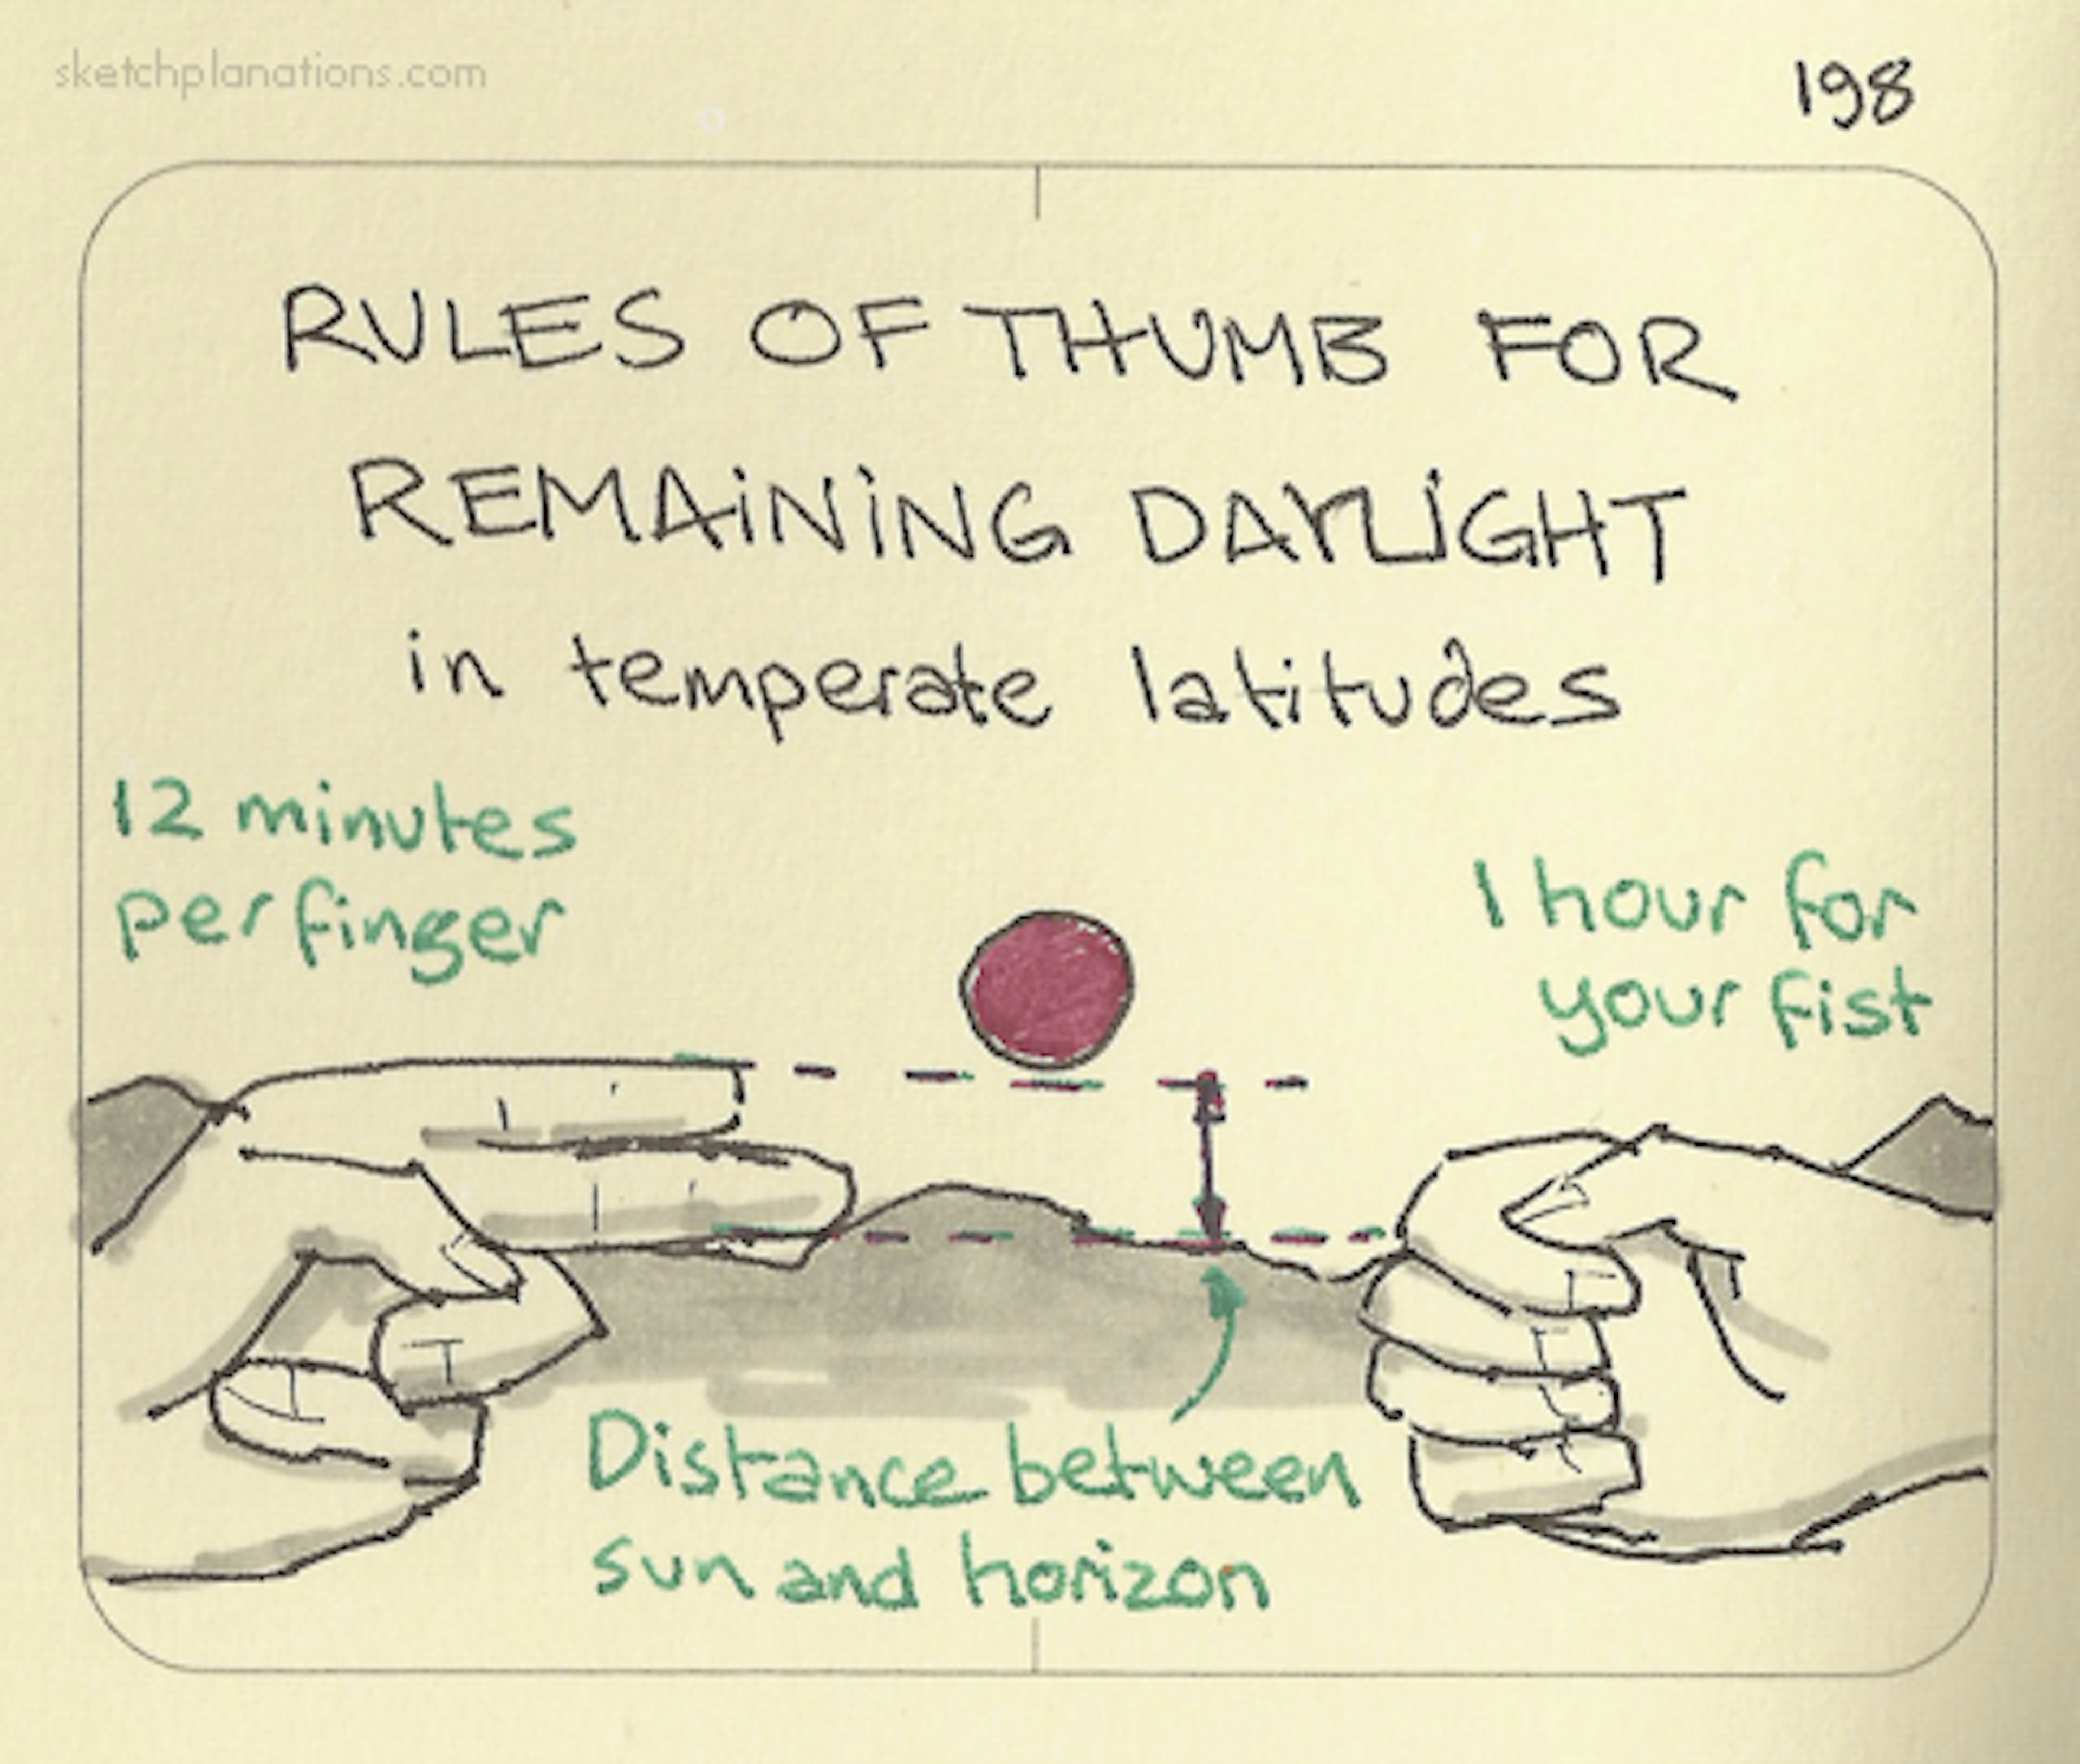 sketchplanations.com
198
RULES OF THUMB FOR
REMAINING DAYLIGHT
in temperate latitudes
12 minutes
per finger
1 hour for
your fist
Distance between
sun and horizon